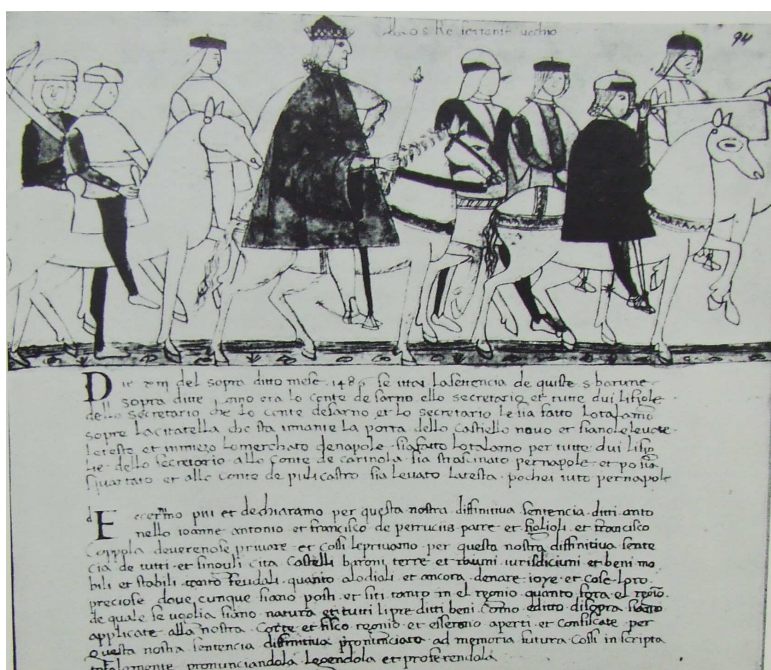 Re ferrante vechio
94
Die del sopra ditto mese 1486 se lta la sentencia de quiste s barune
sopra ditte como era lo conte de sarno ello secretario et tutte dui li figlole
dello secretario che lo conte de sarno et lo secretario le sia fatto lo talamo
sopre la citatella che sta innante la porta dello castiello novo et siano le levate
le teste et immiezo lo merchato de napole sia fatto lo talamo per tutte dui li figlio
lie dello secretorio allo conte de carinola sia strascinato per napole et po sia
squartato et allo conte de pulicastro sia levato la testa pochei tuto per napole
d
Ecerrimo piu et dechiaramo per questa nostra diffinitiva sentencia ditti anto
nello ioanne antonio et francisco de perruciis parre et figlioli et francisco
Coppola deverenose privare et cossi le privamo per questa nostra diffinitiva sente
cia de tutti et sinouli cita castelli baroni terre et iurisdiciuni et beni mo
bili et stabili tanto feudali quanto alodiali et ancora denare ioye et cose loro
preciose dove cunque siano posti et siti tanto in el regnio quanto fora el regnio
de quale se voglia siano natura et tutti li pre ditti beni como editto disopra siano
applicate alla nostra Corte et fisco regnio et esserono aperti et confiscate per
questa nostra sentencia diffinitiva pronunciate ad memoria futura Cossi in scripta
totalmente pronunciandola legendola et proferendola